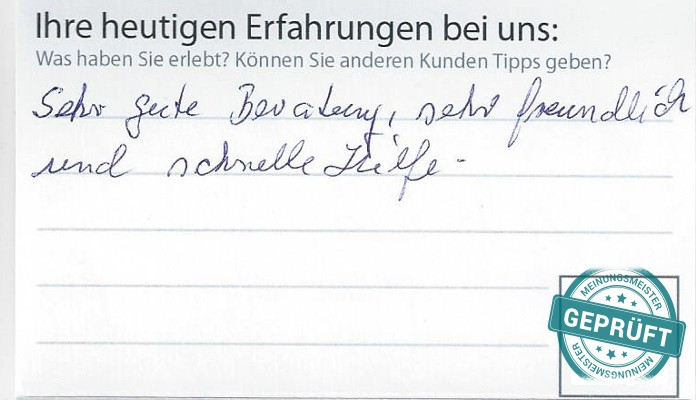 Ihre heutigen Erfahrungen bei uns:
Was haben Sie erlebt? Können Sie anderen Kunden Tipps geben?
Sehr gute Beratung, sehr freundlich
und schnelle Hilfe.
MEINUNGSMEISTER
GEPRÜFT
MEINUNGSMEISTER